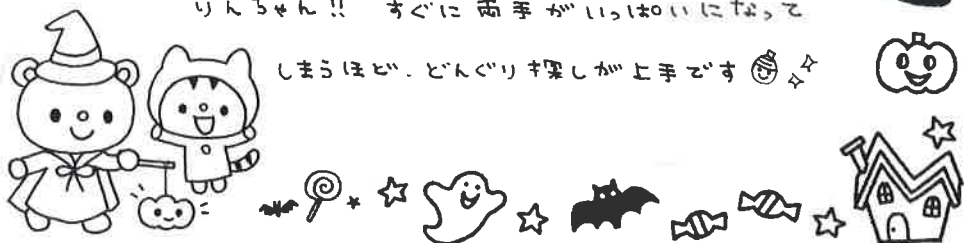 りんちゃん!! すぐに両手がいっぱいになって
しまうほど、どんぐり探しが上手です